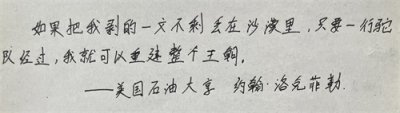 如果把我剥的一文不剩丢在沙漠里，只要一行驼
队经过，我就可以重建整个王朝。
——美国石油大亨 约翰·洛克菲勒.